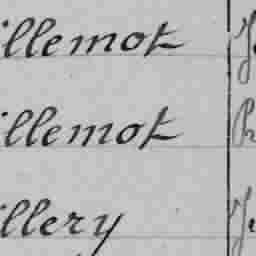 illemot
illemot
illery